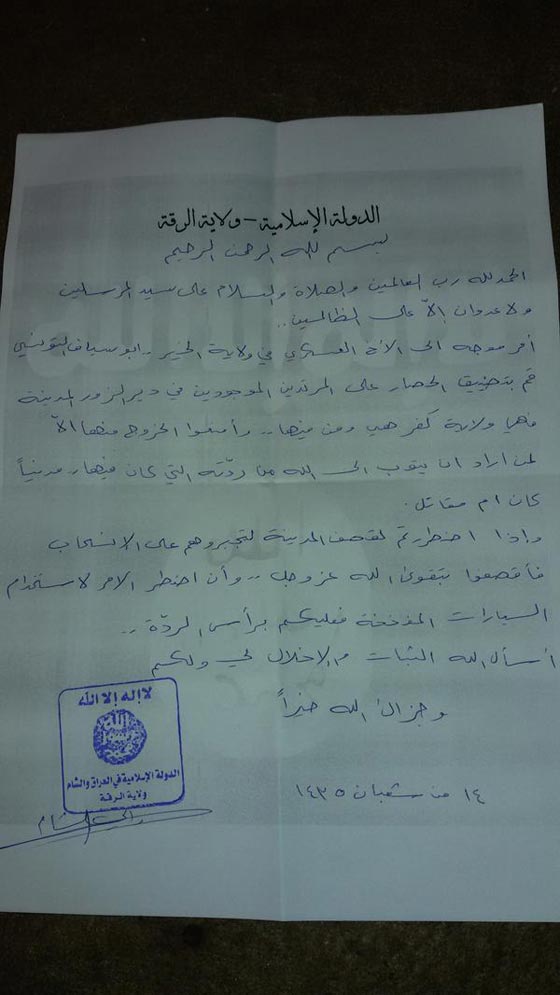 الدولة الإسلامية - ولاية الرقة
بسم الله الرحمن الرحيم
الحمد لله رب العالمين والصلاة والسلام على سيد المرسلين
ولا عدوان الاّ على الظالمين ..
أمر موجه الى الأخ العسكري في ولاية الخير .. ابو سياف التونسي
قم بتضييق الحصار على المرتدين الموجودين في دير الزور المدينة
فهي ولاية كفر هي ومن فيها .. وأمنعوا الخروج منها الاّ
لمن اراد ان يتوب الى الله من ردّته التي كان فيها .. مدنياً
كان ام مقاتل .
وإذا اضطررتم لقصف المدينة لتجبروهم على الانسحاب
فأقصفوا بتقوى الله عز وجل .. وأن اضطر الامر لاستخدام
السيارات المفخخة فعليكم برأس الردّة ..
أسأل الله الثبات و الإخلال لي ولكم
وجزاك الله خيراً
لا إله إلا الله
الدولة الإسلامية في العراق والشام
ولاية الرقة
١٤ من شعبان ١٤٣٥